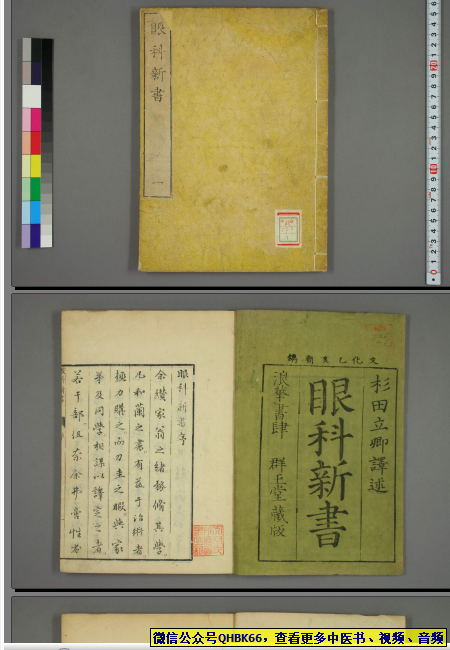 眼科新書
一
文化乙亥新鐫
杉田立卿譯述
眼科新書
浪華書肆 群玉堂藏版
眼科新書序
余纘家翁之緒務脩其學
凡和蘭之書有益于治術者
極力購之而刀圭之暇與家
弟及同學相謀以講究之者
若干部但奈余
微信公众号QHBK66，查看更多中医书、视频、音频